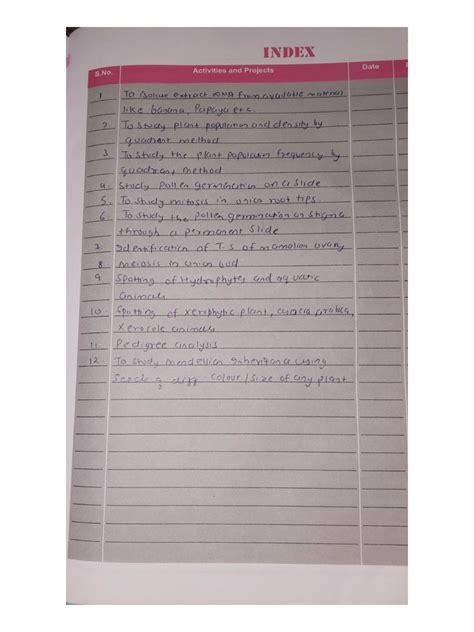 INDEX
S.No. Activities and Projects Date
1 To Isolate extract DNA from available material
like banana, Papaya etc.
2. To study plant population and density by
quadrant method
3 To study the plant population frequency by
quadrant method
4. Study pollen germination on a slide
5. To study mitosis in onion root tips.
6. To study the pollen germination on stigma
through a permanent slide
7. Identification of T.S of mamalian ovary
8. meiosis in onion bud
9 Spotting of Hydrophytes and aquatic
animals
10. Spotting of xerophytic plant, arabica,
xerocole animals
11. Pedigree analysis
12. To study mendelian inheritance using
Seeds of diff colour/size of any plant